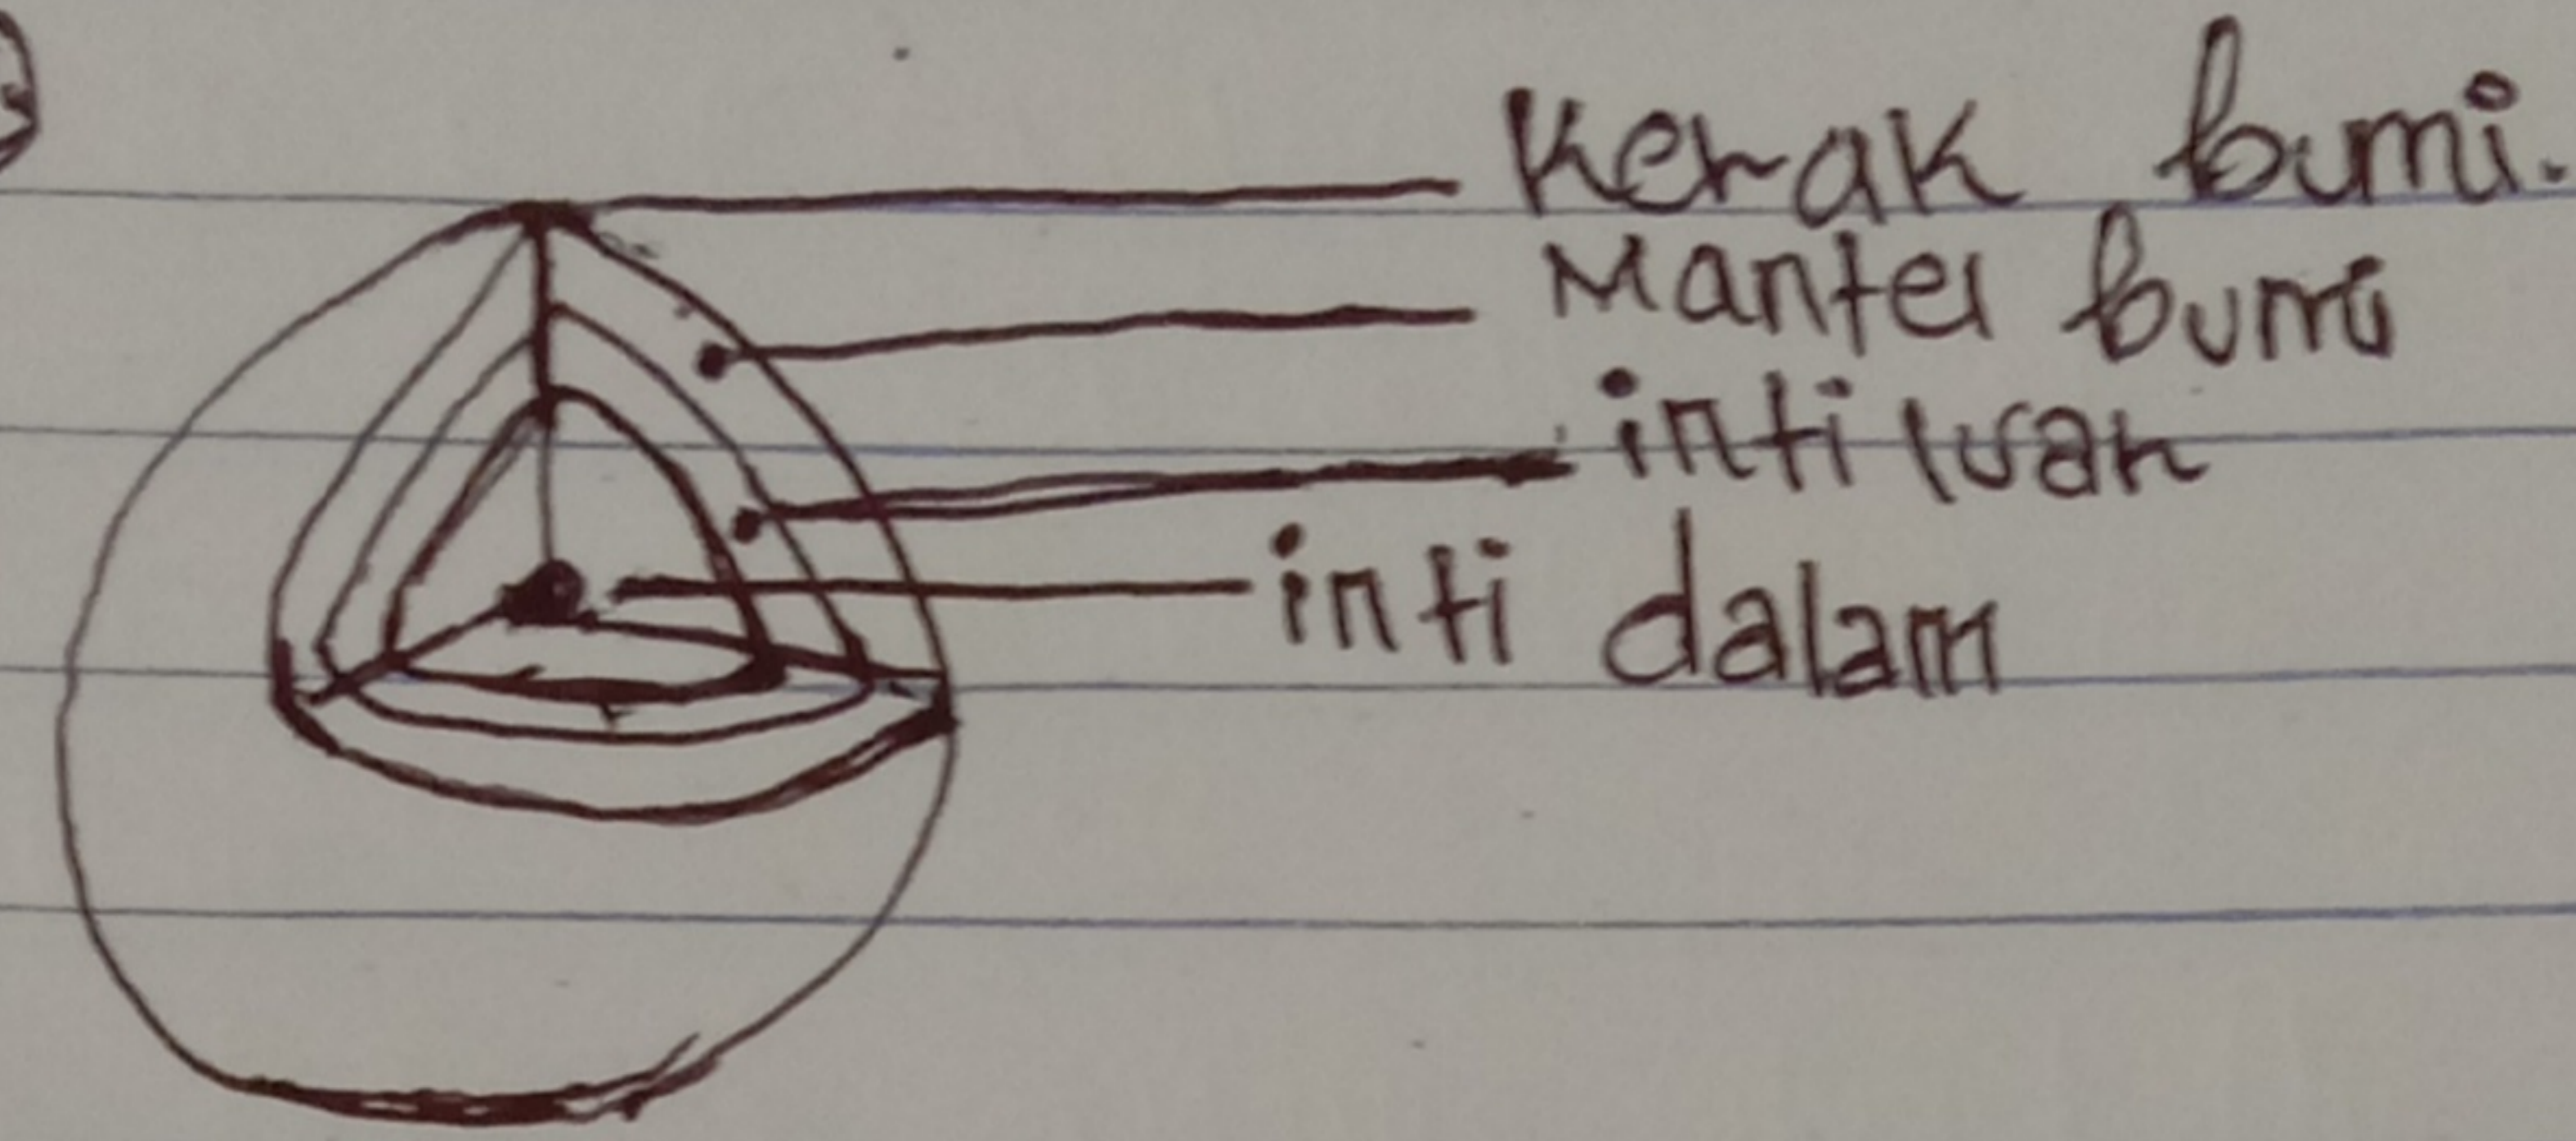 Kerak bumi.
Mantel bumi
inti luar
inti dalam